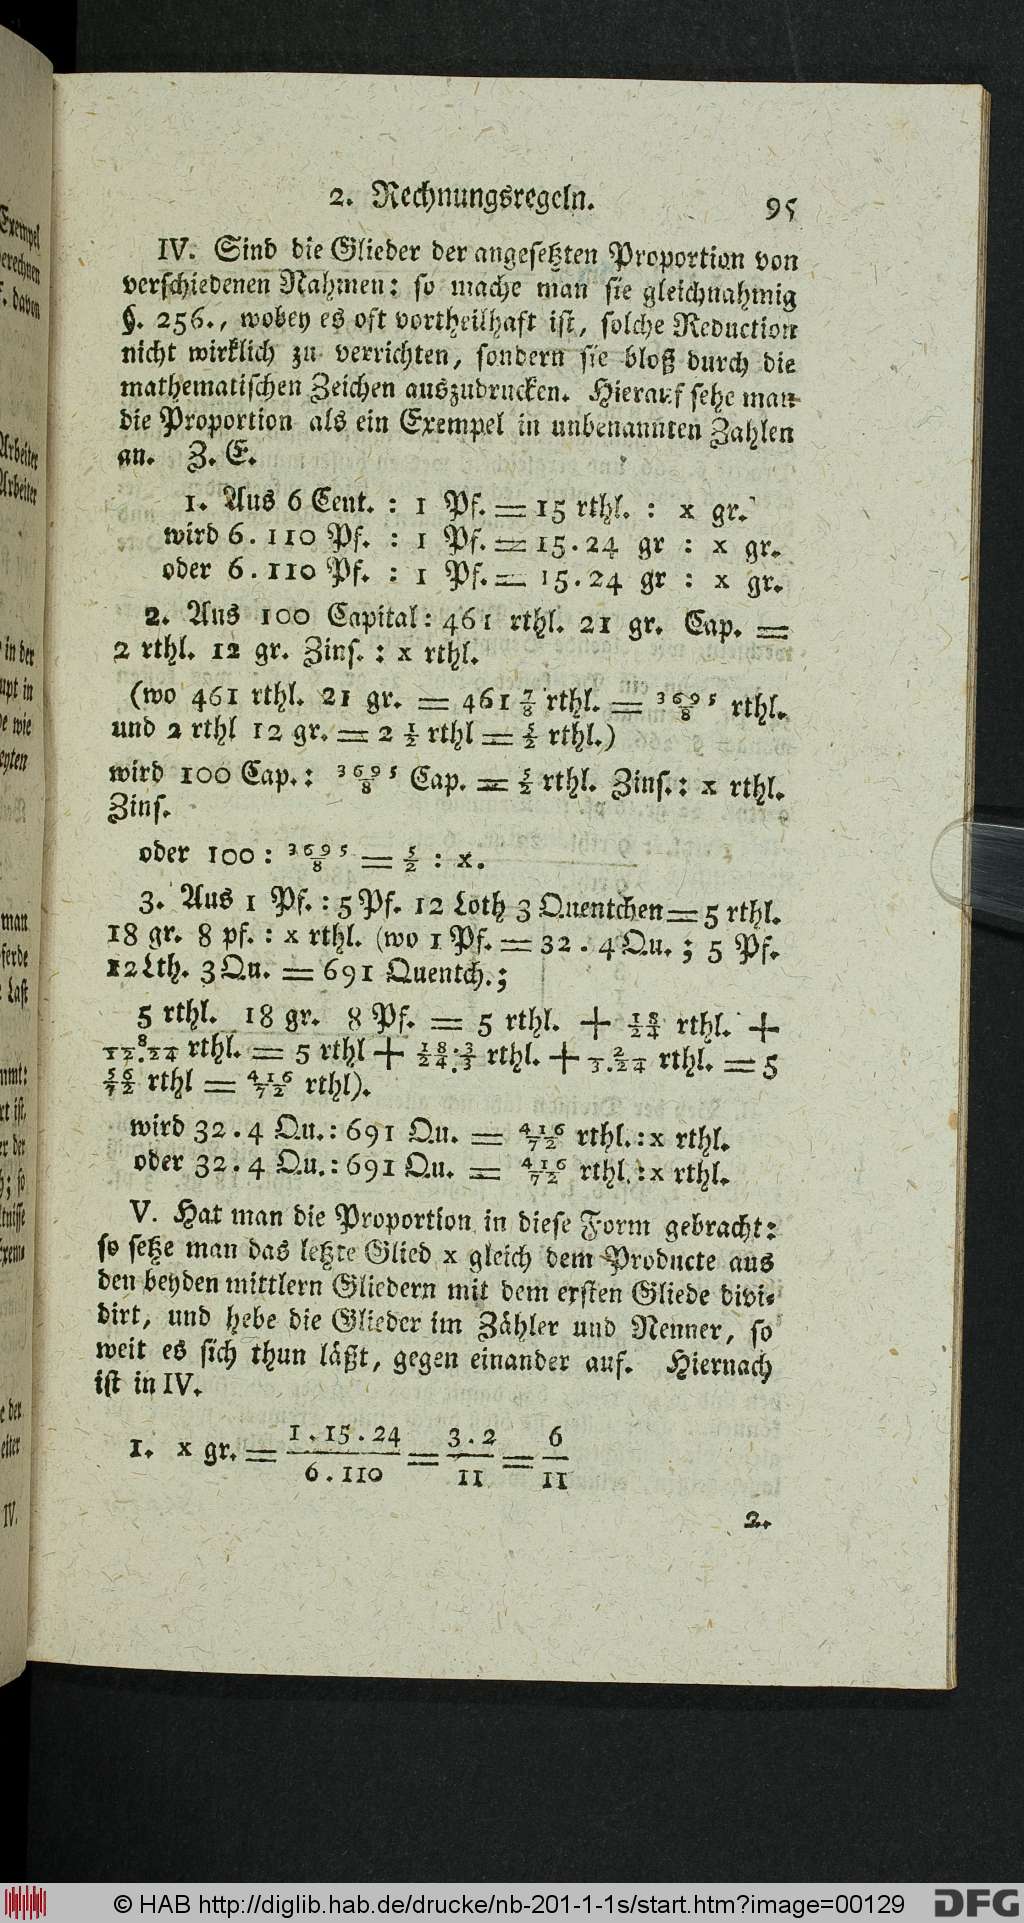 2. Rechnungsregeln. 95
IV. Sind die Glieder der angesetzten Proportion von
verschiedenen Nahmen: so mache man sie gleichnahmig
§. 256., wobey es oft vortheilhaft ist, solche Reduction
nicht wirklich zu verrichten, sondern sie bloß durch die
mathematischen Zeichen auszudrucken. Hierauf sehe man
die Proportion als ein Exempel in unbenannten Zahlen
an. Z. E.
1. Aus 6 Cent. : 1 Pf. = 15 rthl. : x gr.
wird 6 . 110 Pf. : 1 Pf. = 15 . 24 gr : x gr.
oder 6 . 110 Pf. : 1 Pf. = 15 . 24 gr : x gr.
2. Aus 100 Capital: 461 rthl. 21 gr. Cap. =
2 rthl. 12 gr. Zins. : x rthl.
(wo 461 rthl. 21 gr. = 461 7/8 rthl. = 3695/8 rthl.
und 2 rthl 12 gr. = 2 1/2 rthl = 5/2 rthl.)
wird 100 Cap. : 3695/8 Cap. = 5/2 rthl. Zins. : x rthl.
Zins.
oder 100 : 3695/8 = 5/2 : x.
3. Aus 1 Pf. : 5 Pf. 12 Loth 3 Quentchen = 5 rthl.
18 gr. 8 pf. : x rthl. (wo 1 Pf. = 32 . 4 Qu. ; 5 Pf.
12 Lth. 3 Qu. = 691 Quentch. ;
5 rthl. 18 gr. 8 Pf. = 5 rthl. + 18/24 rthl. +
8/12.24 rthl. = 5 rthl + 18.3/24.3 rthl. + 2/3.24 rthl. = 5
56/72 rthl = 416/72 rthl).
wird 32 . 4 Qu. : 691 Qu. = 416/72 rthl. : x rthl.
oder 32 . 4 Qu. : 691 Qu. = 416/72 rthl. : x rthl.
V. Hat man die Proportion in diese Form gebracht:
so setze man das letzte Glied x gleich dem Producte aus
den beyden mittlern Gliedern mit dem ersten Gliede divi-
dirt, und hebe die Glieder im Zähler und Nenner, so
weit es sich thun läßt, gegen einander auf. Hiernach
ist in IV.
1. x gr. = 1 . 15 . 24 / 6 . 110 = 3 . 2 / 11 = 6 / 11
2.
© HAB http://diglib.hab.de/drucke/nb-201-1-1s/start.htm?image=00129 DFG